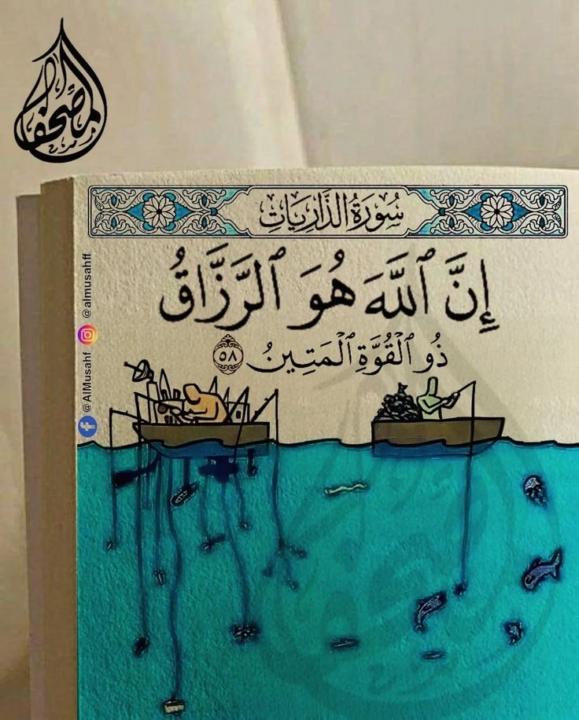 المصحف
سُورَةُ الذَّارِيَاتِ
إِنَّ ٱللَّهَ هُوَ ٱلرَّزَّاقُ
ذُو ٱلْقُوَّةِ ٱلْمَتِينُ ٥٨
@almusahff
@AlMusahf